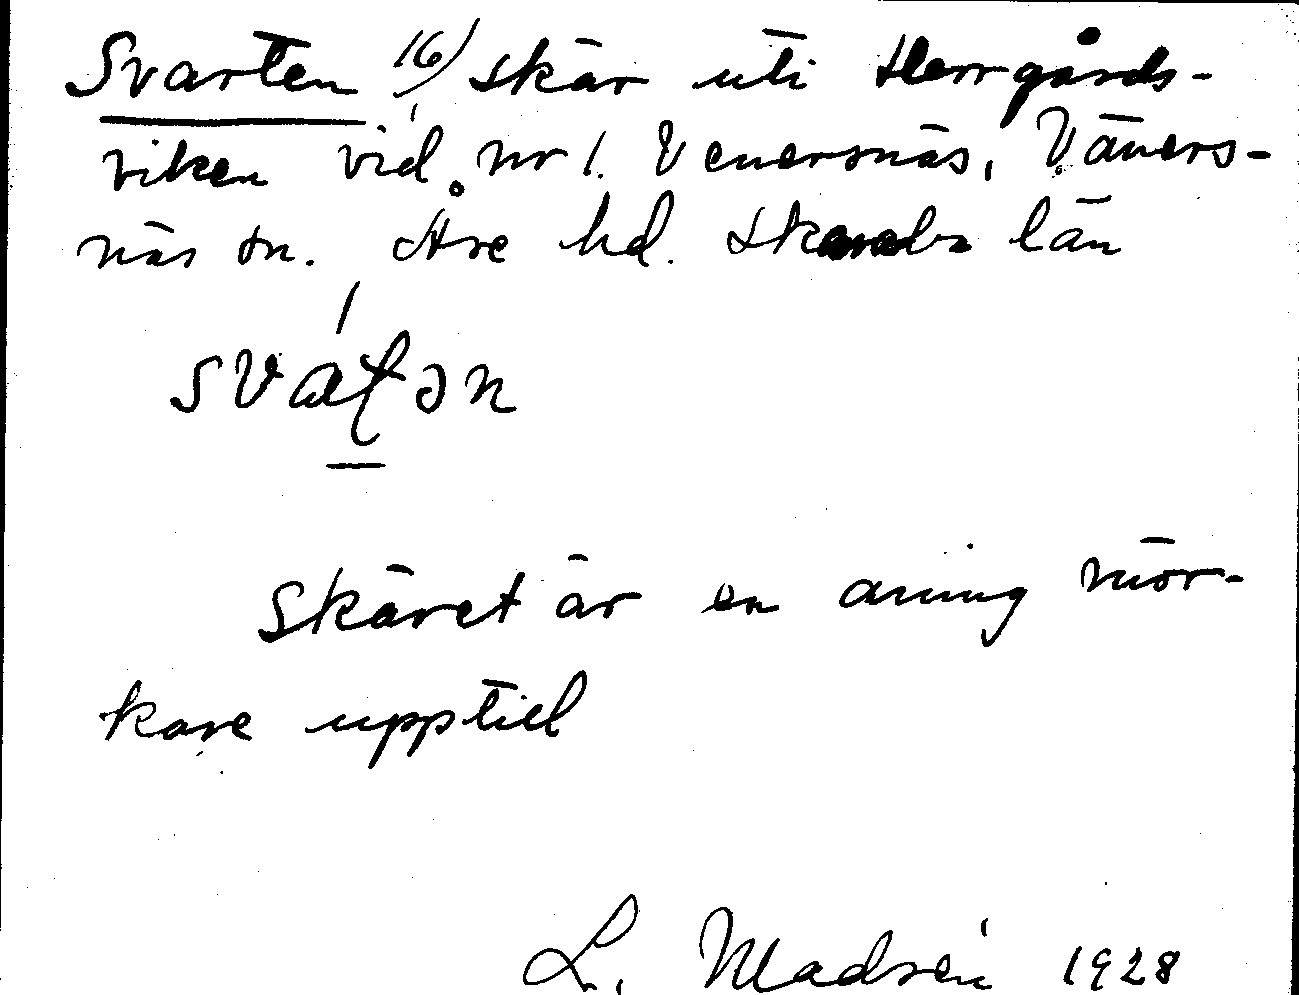 Svarten 16) skär uti Herrgårds-
viken vid nr 1. Venersnäs, Väners-
näs sn. Åse hd. Skarabs län
svat̨ən
Skäret är en aning mör-
kare upptill
L. Madsén 1928